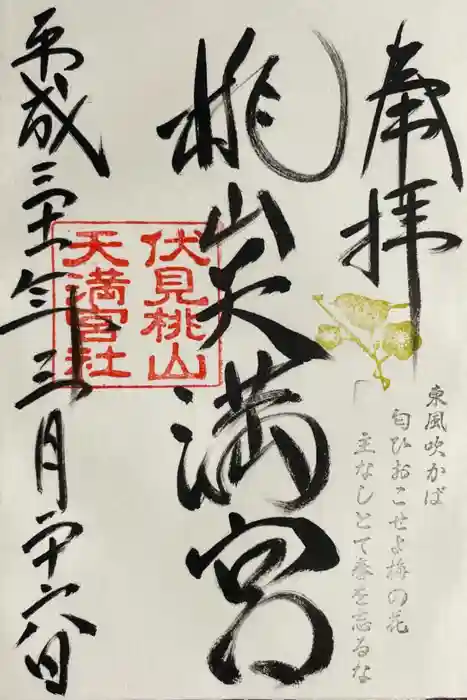 奉拝
東風吹かば
匂ひおこせよ梅の花
主なしとて春を忘るな
桃山天満宮
伏見桃山
天満宮社
平成三十一年三月二十六日